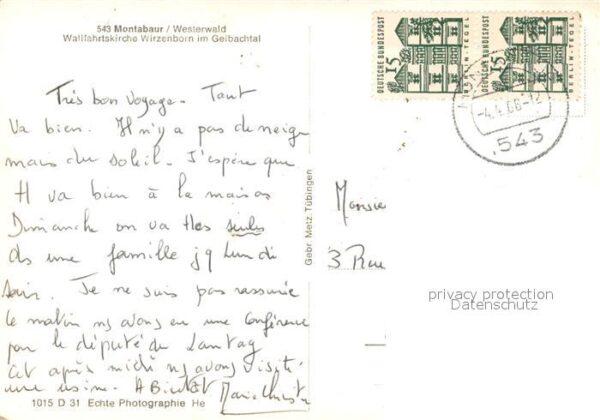 543 Montabaur / Westerwald
Wallfahrtskirche Wirzenborn im Gelbachtal
Très bon voyage. Tout
va bien. Il n'y a pas de neige
mais du soleil. J'espère que
tt va bien à la maison
Dimanche on va ttes seules
ds une famille jq lundi
soir. Je ne suis pas rassurée
Le matin ns avons eu une conférence
par le député de Lantag
Cet après midi ns avons visité
une usine. A Bientôt
1015 D 31 Echte Photographie He
Gebr. Metz, Tübingen
DEUTSCHE BUNDESPOST
15
BERLIN-TEGEL
DEUTSCHE BUNDESPOST
15
BERLIN-TEGEL
543
Monsie
3 Rue
privacy protection
Datenschutz